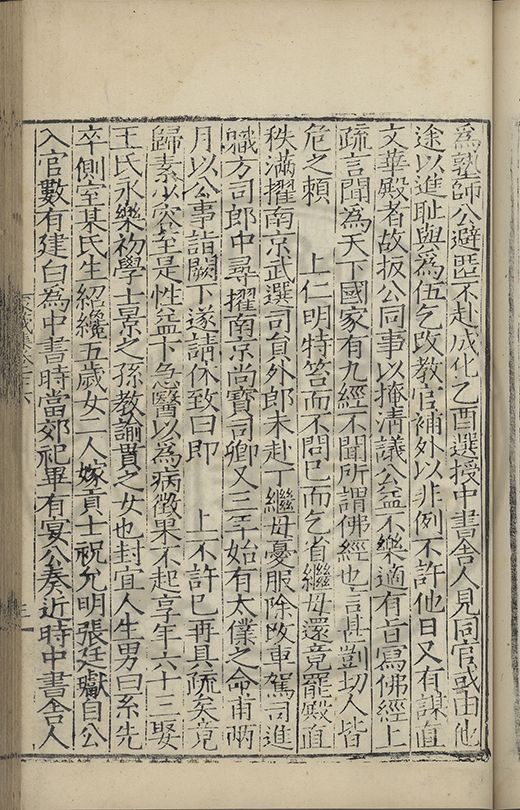 爲塾師公避匿不赴成化乙酉選授中書舍人見同官或由他
途以進耻與爲伍乞改教官補外以非例不許他日又有謀直
文華殿者故扳公同事以掩淸議公益不樂適有旨寫佛經上
疏言聞爲天下國家有九經不聞所謂佛經也言甚剴切人皆
危之賴 上仁明特笞而不問已而乞省繼母還竟罷殿直
秩滿擢南京武選司員外郎未赴丁繼母憂服除改車駕司進
職方司郎中尋擢南京尚寶司卿又三年始有太僕之命甫兩
月以公事詣闕下遂請休致曰即 上不許已再具疏矣竟
歸素少容至是性益卞急醫以爲病徵果不起享年六十三娶
王氏永樂初學士景之孫教諭貫之女也封宜人生男曰系先
卒側室某氏生紹纔五歲女二人嫁貢士祝允明張廷瓛自公
入官數有建白爲中書時當郊祀畢有宴公奏近時中書舍人